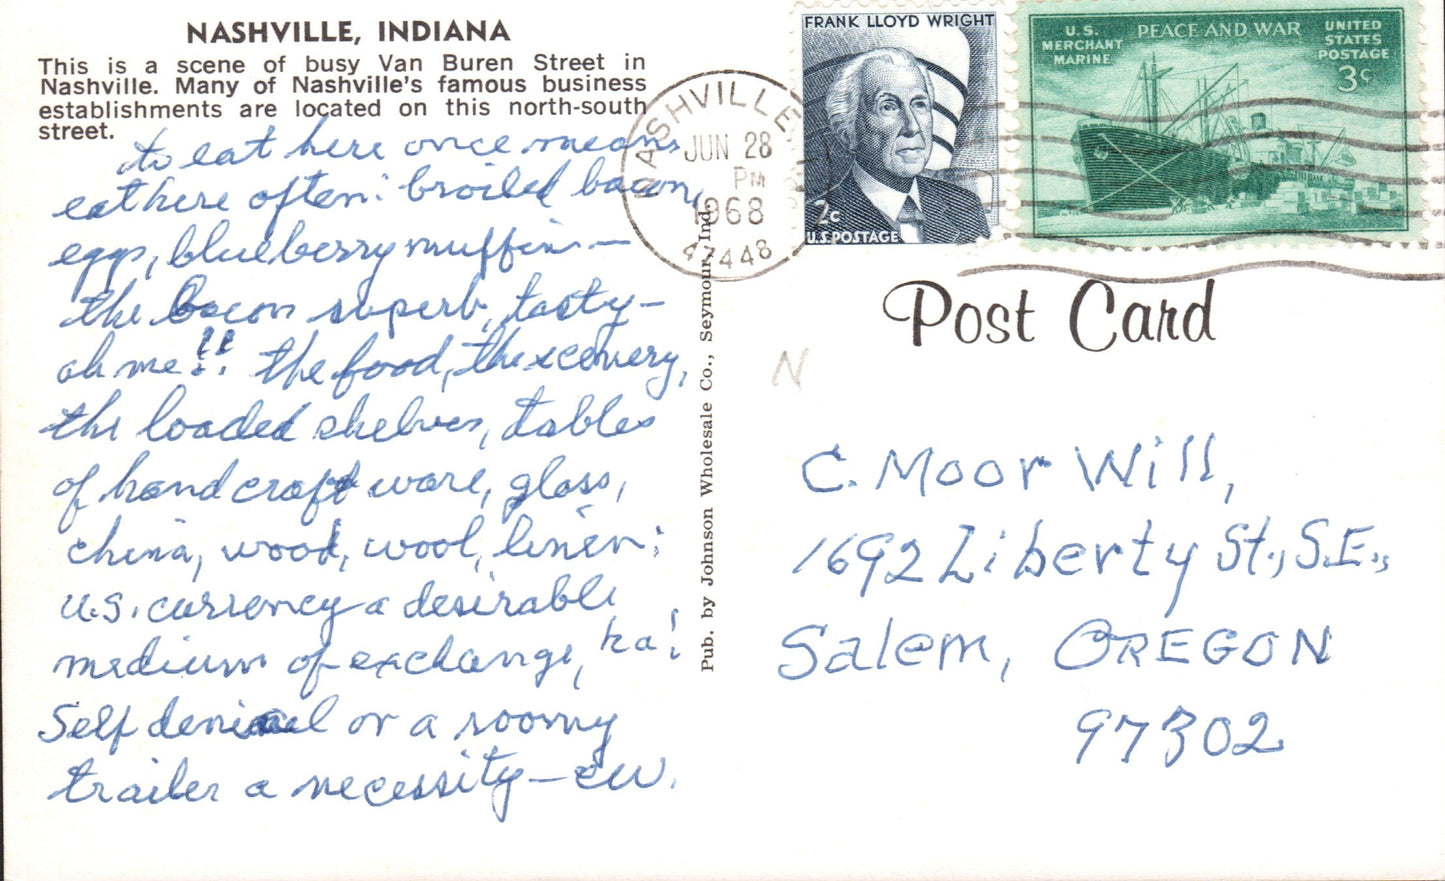 NASHVILLE, INDIANA
This is a scene of busy Van Buren Street in
Nashville. Many of Nashville's famous business
establishments are located on this north-south
street.
to eat here once means
eat here often: broiled bacon,
eggs, blueberry muffins —
the bacon superb, tasty —
ah me!! the food, the scenery,
the loaded shelves, tables
of handcraft ware, glass,
china, wood, wool, linen;
U.S. currency a desirable
medium of exchange, ha!
Self denial or a roomy
trailer a necessity — CW.
Pub. by Johnson Wholesale Co., Seymour, Ind.
NASHVILLE
JUN 28
PM
1968
47448
FRANK LLOYD WRIGHT
2c
U.S. POSTAGE
U.S.
MERCHANT
MARINE
PEACE AND WAR
UNITED
STATES
POSTAGE
3c
Post Card
N
C. Moor Will,
1692 Liberty St., S.E.,
Salem, OREGON
97302